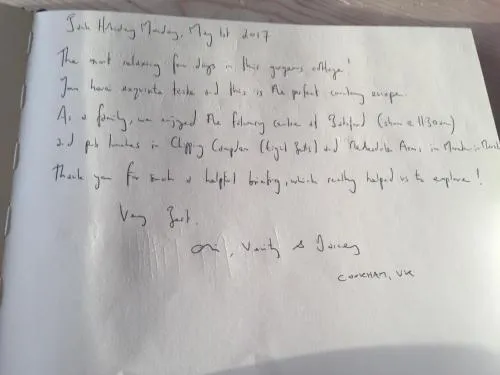 Bank Holiday Monday, May 1st 2017
The most relaxing few days in this gorgeous cottage!
You have exquisite taste and this is the perfect country escape.
As a family, we enjoyed the falconry centre at Batsford (show @ 11:30am)
and pub lunches in Chipping Campden (Eight Bells) and Redesdale Arms, in Moreton in Marsh
Thank you for such a helpful briefing, which really helped us to explore!
Very Best.
, Verity &
COOKHAM, UK